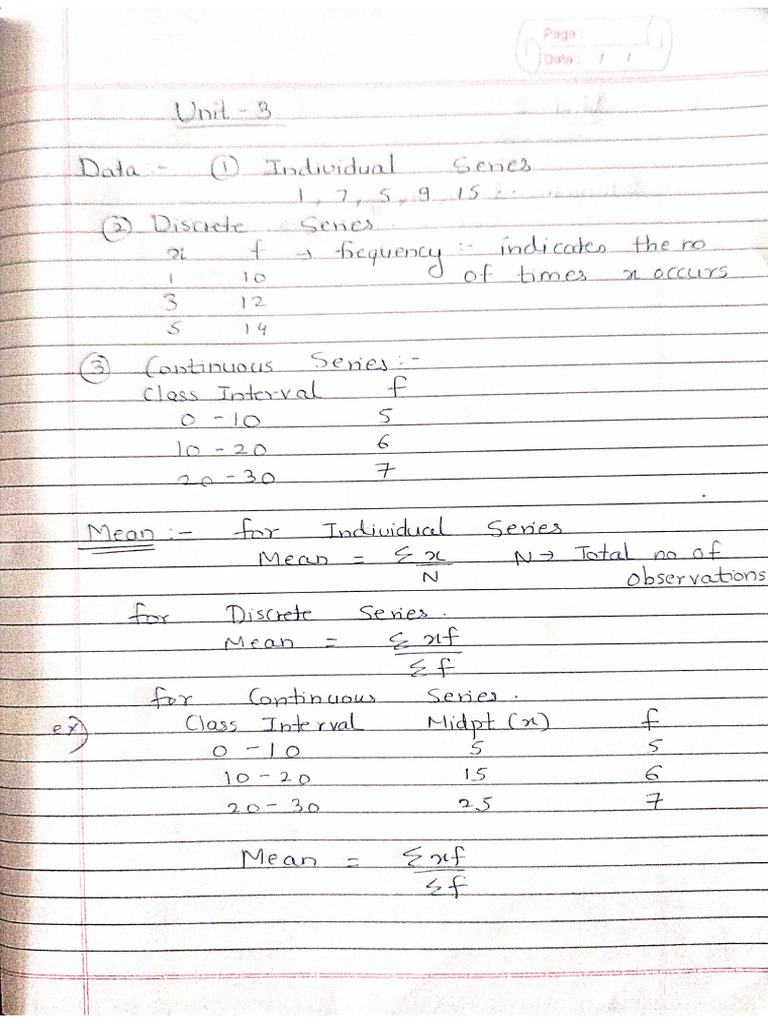 Page :
Date : / /
Unit - 3
Data :- ① Individual Series
1, 7, 5, 9, 15 ..
② Discrete Series.
x f → frequency :- indicates the no
1 10 of times x occurs
3 12
5 14
③ Continuous Series :-
Class Interval f
0 - 10 5
10 - 20 6
20 - 30 7
Mean :- for Individual Series
Mean = Σx / N N → Total no of
observations
for Discrete Series.
Mean = Σxf / Σf
for Continuous Series.
ex) Class Interval Midpt (x) f
0 - 10 5 5
10 - 20 15 6
20 - 30 25 7
Mean = Σxf / Σf